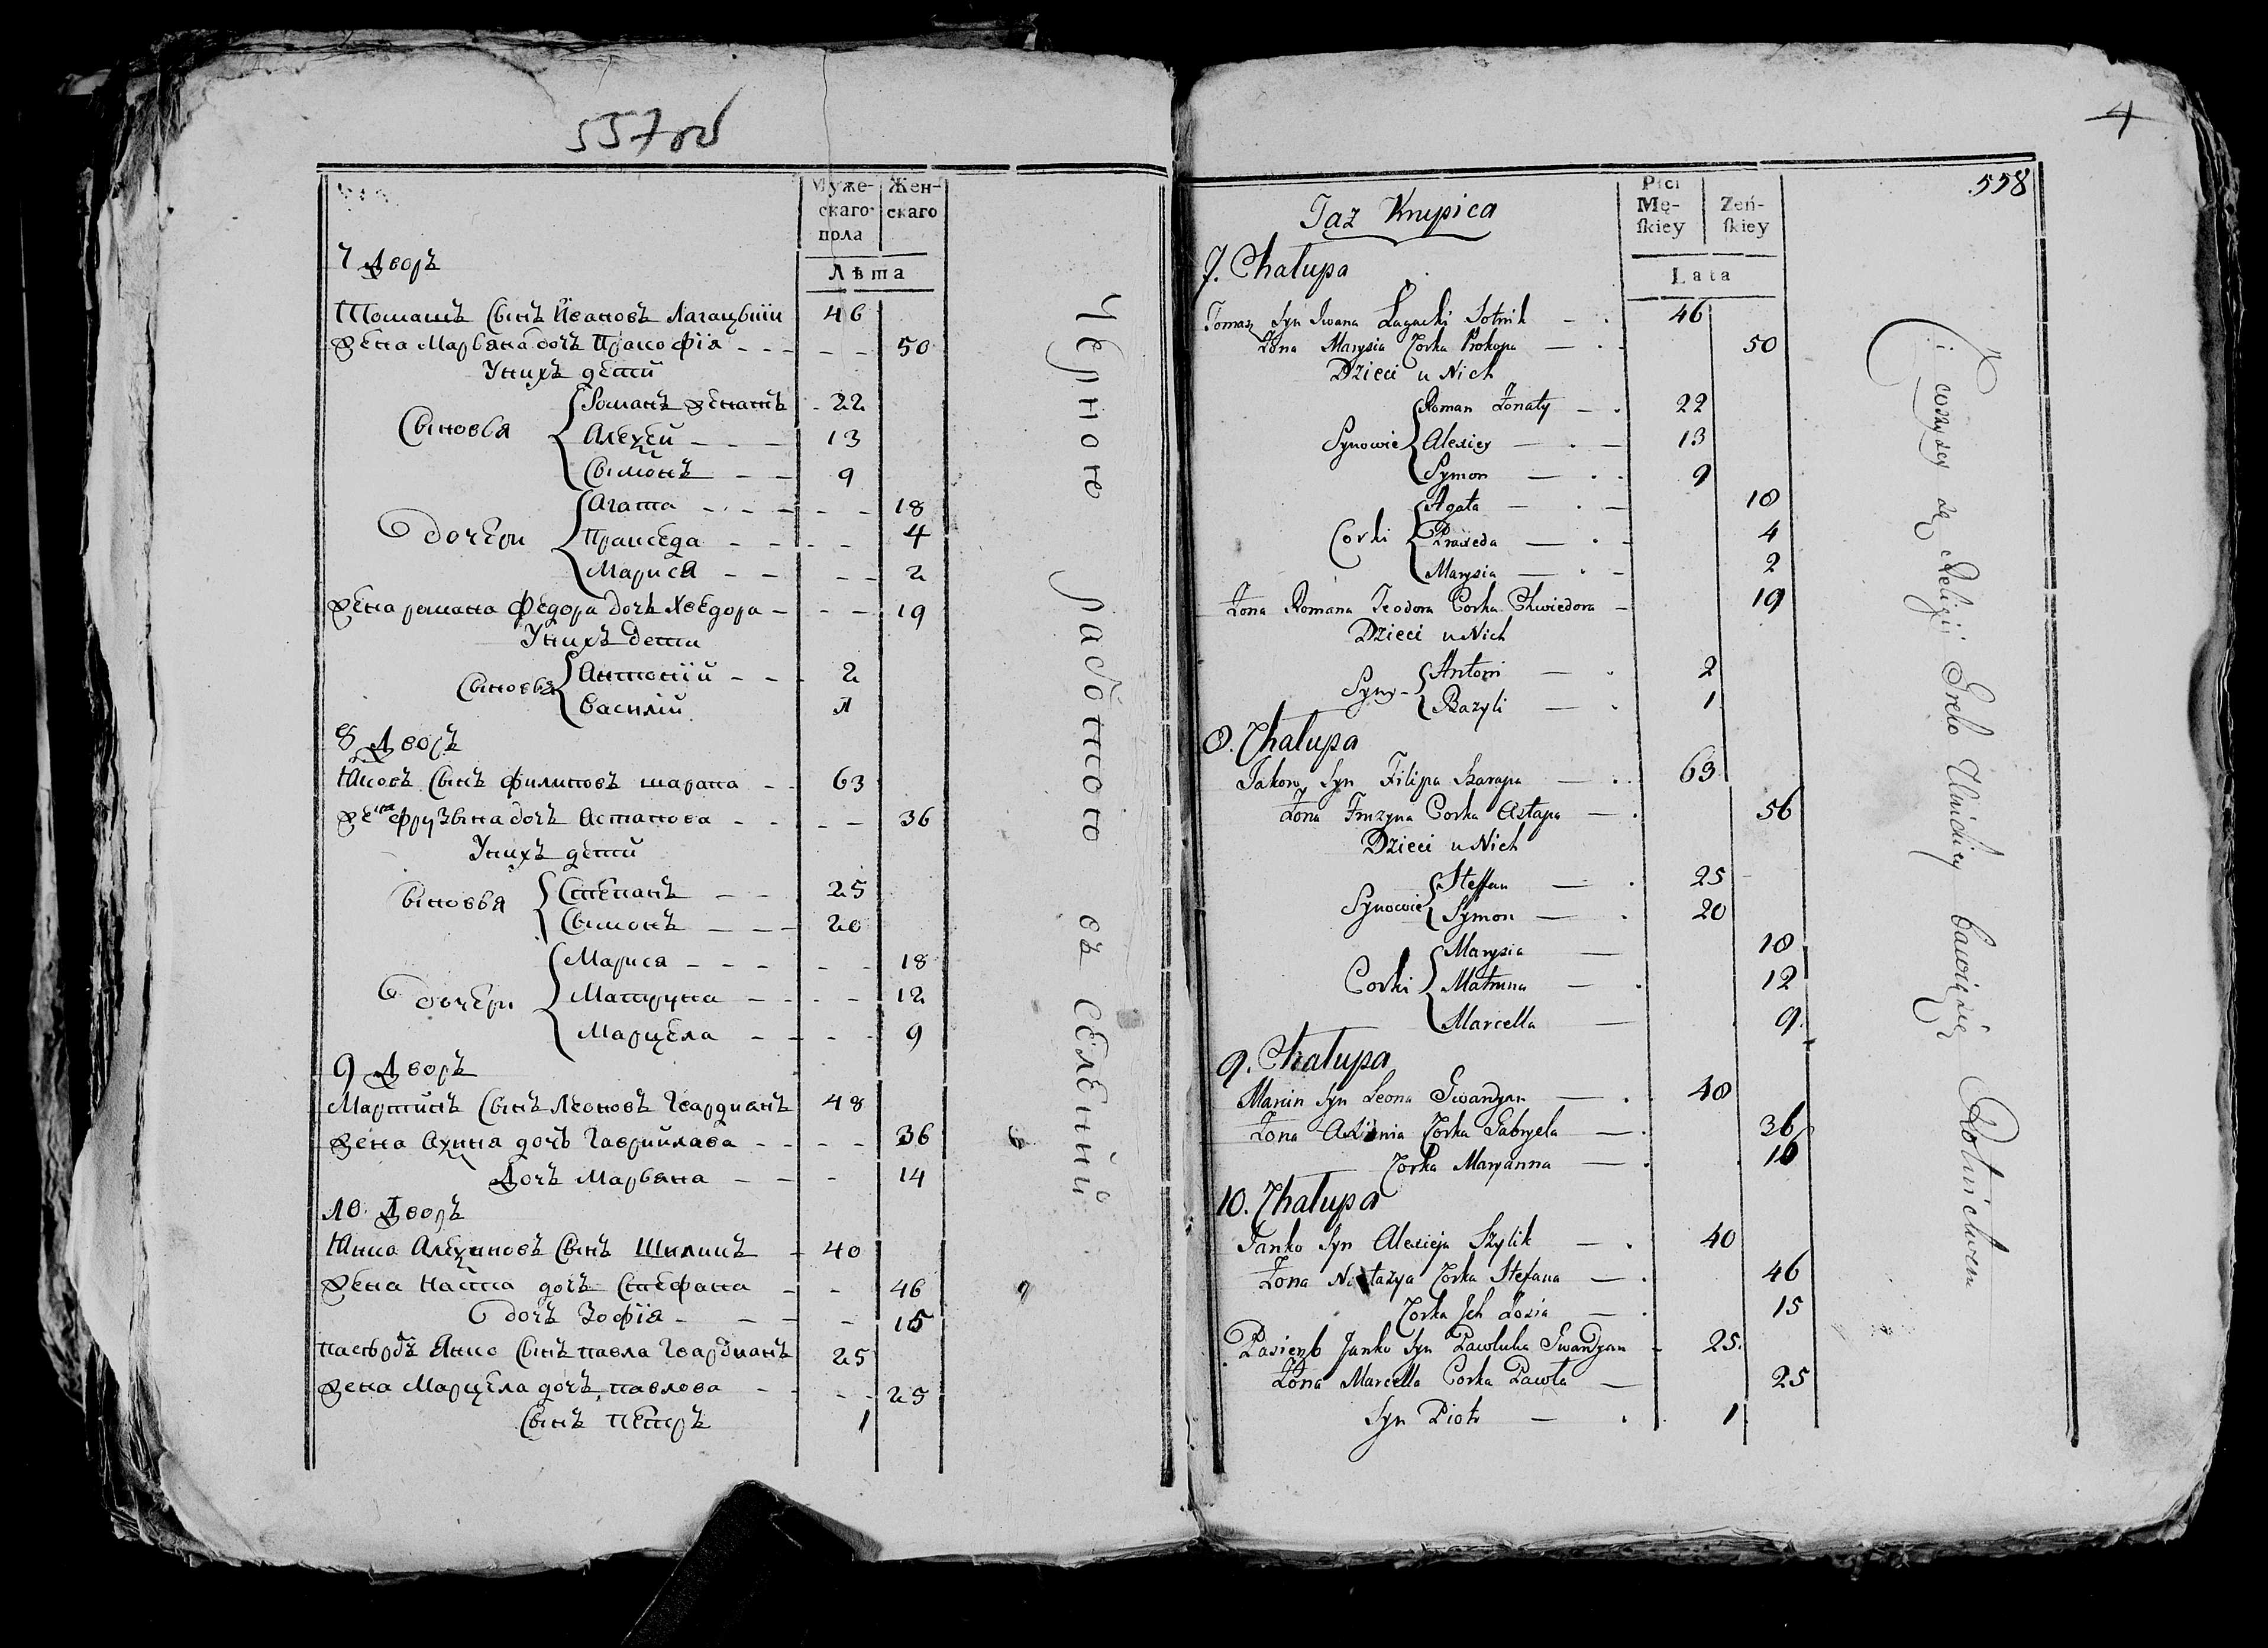 557 об
Муже- Жен-
скаго скаго
пола
Лѣта
7 Дворъ
Томашъ Сынъ Ивановъ Лагацкии 46
Жена Марьяна дочъ Прокофія 50
У нихъ дети
Сыновья Романъ женатъ 22
Алеѯей 13
Сымонъ 9
Дочери Агата 18
Пракседа 4
Марися 2
Жена романа Федора дочъ Хведора 19
У нихъ дети
Сыновья Антоній 2
Василій 1
8 Дворъ
Яковъ Сынъ филиповъ шарапа 63
Жена фрузына дочъ Астапова 36
У нихъ дети
Сыновья Степанъ 25
Сымонъ 20
Дочери Марися 18
Матруна 12
Марцела 9
9 Дворъ
Мартинъ Сынъ Леоновъ Гвардианъ 48
Жена Аѯиня дочъ Гаврийлава 36
Дочъ Марьяна 14
10 Дворъ
Янка Алеѯиновъ Сынъ Шиликъ 40
Жена Наста дочъ Стефана 46
дочъ Зофія 15
пасербъ Янко Сынъ павла Гвардианъ 25
Жена Марцела дочъ павлова 25
Сынъ Петръ 1
Чорною работною въ Селений
4
558
Taz Krupica
Płci
Mę- Zeń-
ſkiey ſkiey
Lata
7. Chałupa
Tomasz Syn Jwana Łagacki Sotnik 46
Żona Marysia Corka Prokopa 50
Dzieci u Nich
Synowie Roman Żonaty 22
Alexiey 13
Symon 9
Corki Agata 18
Praxeda 4
Marysia 2
Żona Romana Teodora Corka Chwiedora 19
Dzieci u Nich
Syny Antoni 2
Bazyli 1
8. Chałupa
Jakow Syn Filipa Szarapa 63
Żona Fruzyna Corka Astapa 56
Dzieci u Nich
Synowie Steffan 25
Symon 20
Corki Marysia 18
Matruna 12
Marcella 9
9. Chałupa
Marcin Syn Leona Gwardyan 48
Żona Axinia Corka Gabryela 36
Corka Maryanna 16
10. Chałupa
Janko Syn Alexieja Szylik 40
Żona Nastazya Corka Stefana 46
Corka Jch Zosia 15
Pasierb Janko Syn Pawluka Gwardyan 25
Żona Marcella Corka Pawła 25
Syn Piotr 1
Ci wszyscy są Religii Greko Unickiey bawią się Rolnictwem